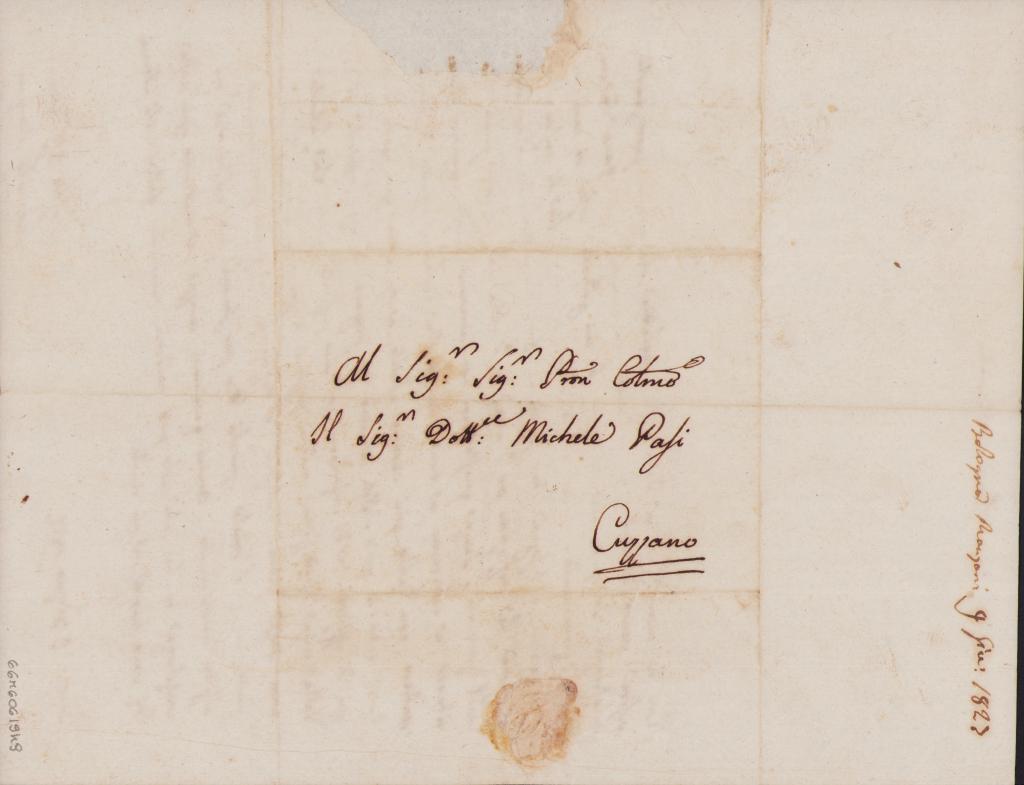 Al Sig:r Sig:r Pron Colmo
Il Sig:r Dott:re Michele Pasi
Cuzzano
Bologna 9 Giu: 1823